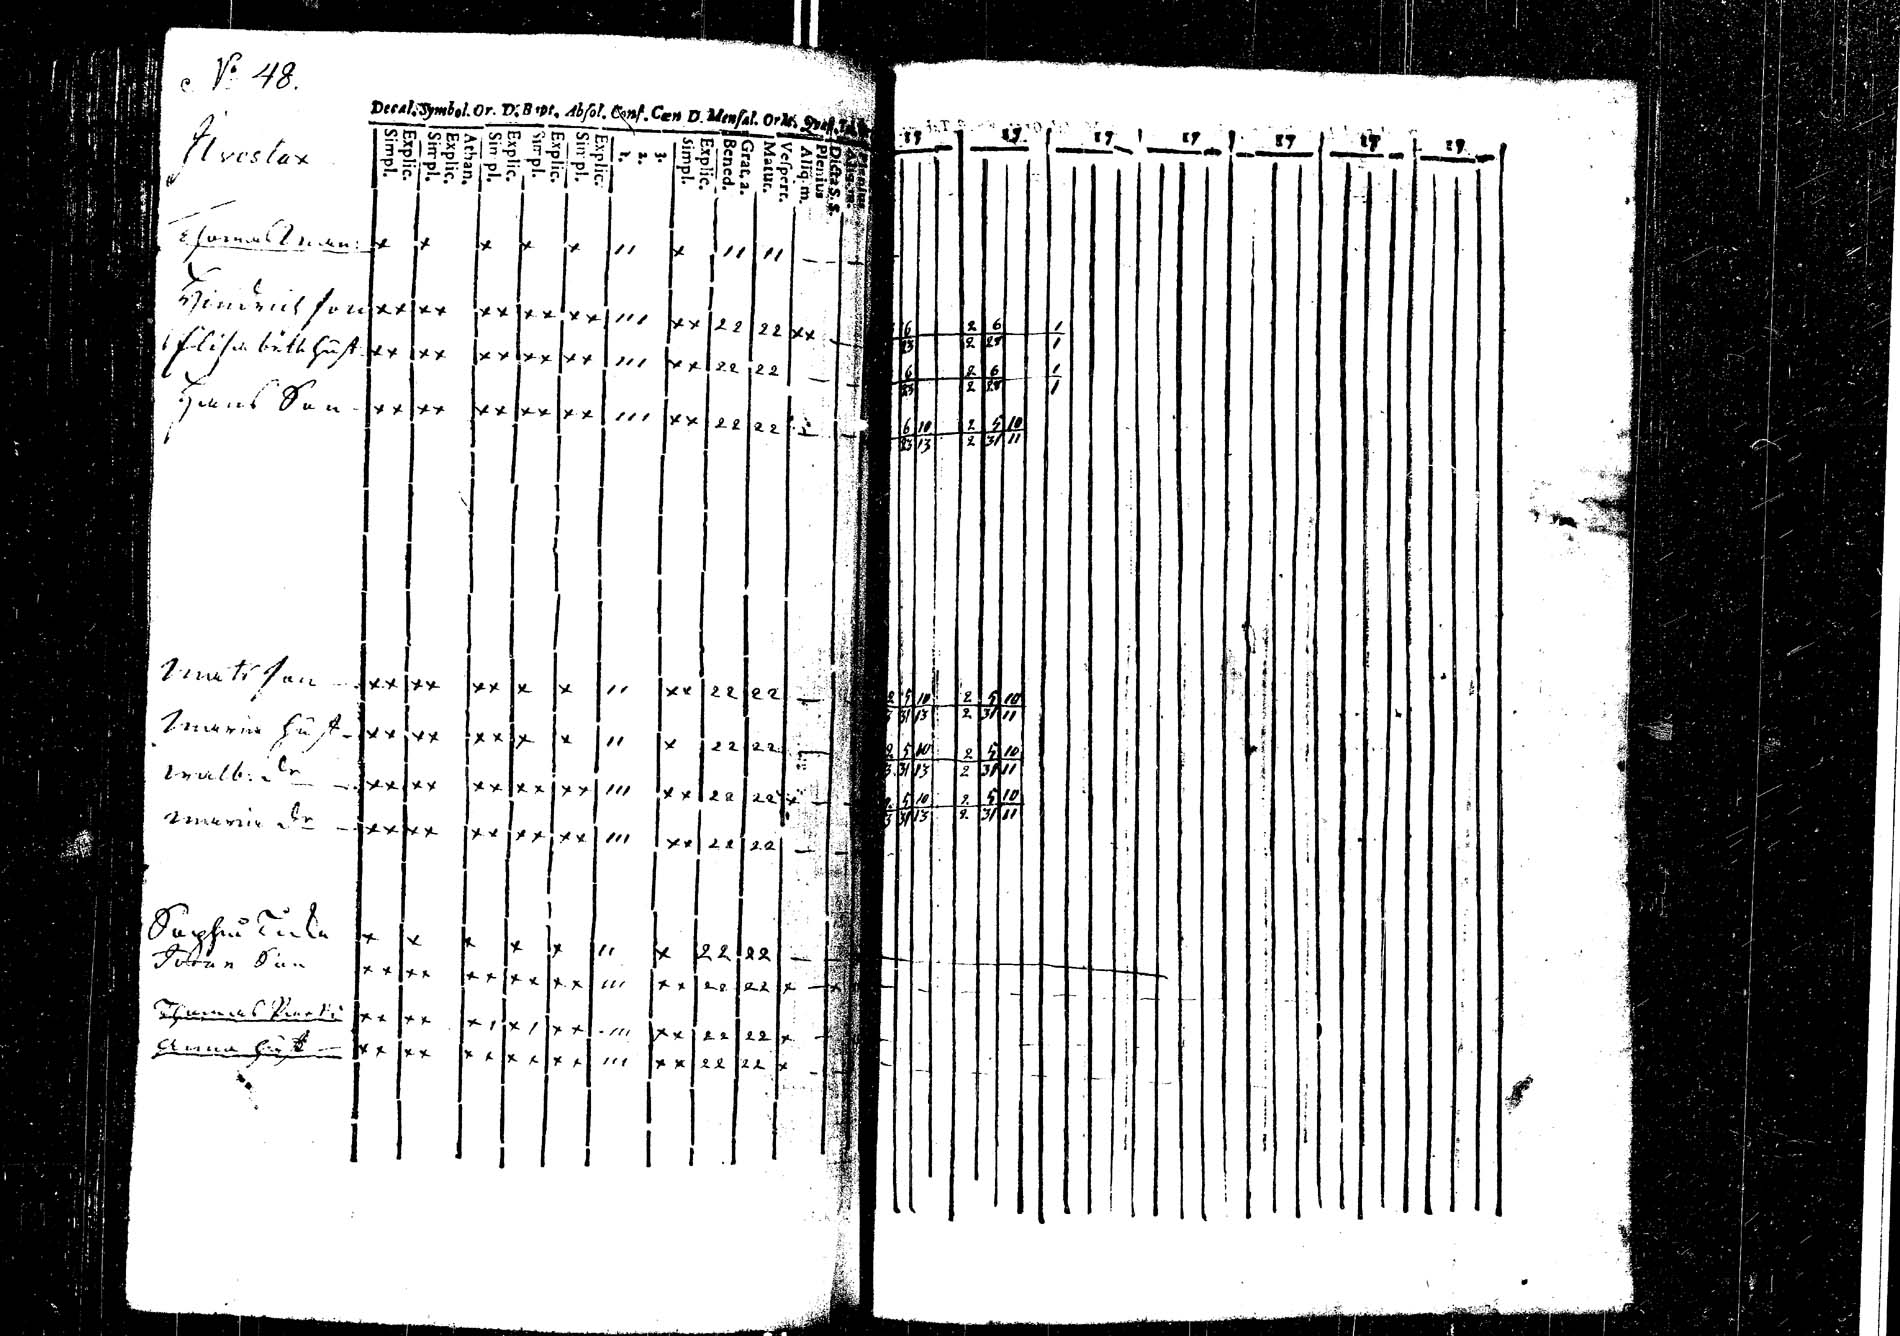 No 48.
Decal. Symbol. Or. D. Bapt. Absol. Conf. Cœn D. Mensal. Orat. Quæst.
Simpl. Explic. Simpl. Explic. Athan. Simpl. Explic. Simpl. Explic. Simpl. Explic. 1. 2. 3. Simpl. Explic. Bened. Grat. a. Matut. Vespert. Aliq. m. Plenius Dicta S. S.
17 17 17 17 17 17 17
Thomas x x x x x 11 x 11 11
Hindrich Son xx xx xx xx xx 111 xx 22 22 xx
6 2 6 1
23 2 28 1
Elisabeth hust xx xx xx xx xx 111 xx 22 22
6 2 6 1
23 2 28 1
Hans Son xx xx xx xx xx 111 xx 22 22
6 10 2 5 10
23 13 2 31 11
Mats Son xx xx xx x x 11 xx 22 22
2 5 10 2 5 10
3 31 13 2 31 11
Maria hust xx xx xx x x 11 x 22 22
2 5 10 2 5 10
3 31 13 2 31 11
Walb. Dr xx xx xx xx xx 111 xx 22 22 x
2 5 10 2 5 10
3 31 13 2 31 11
Maria Dr xx xx xx xx xx 111 xx 22 22
x x x x x 11 x 22 22
Johan Son xx xx xx xx xx 111 xx 22 22 x x
Thomas xx xx x1 x1 xx 111 xx 22 22 x
Anna hust xx xx xx xx xx 111 xx 22 22 x